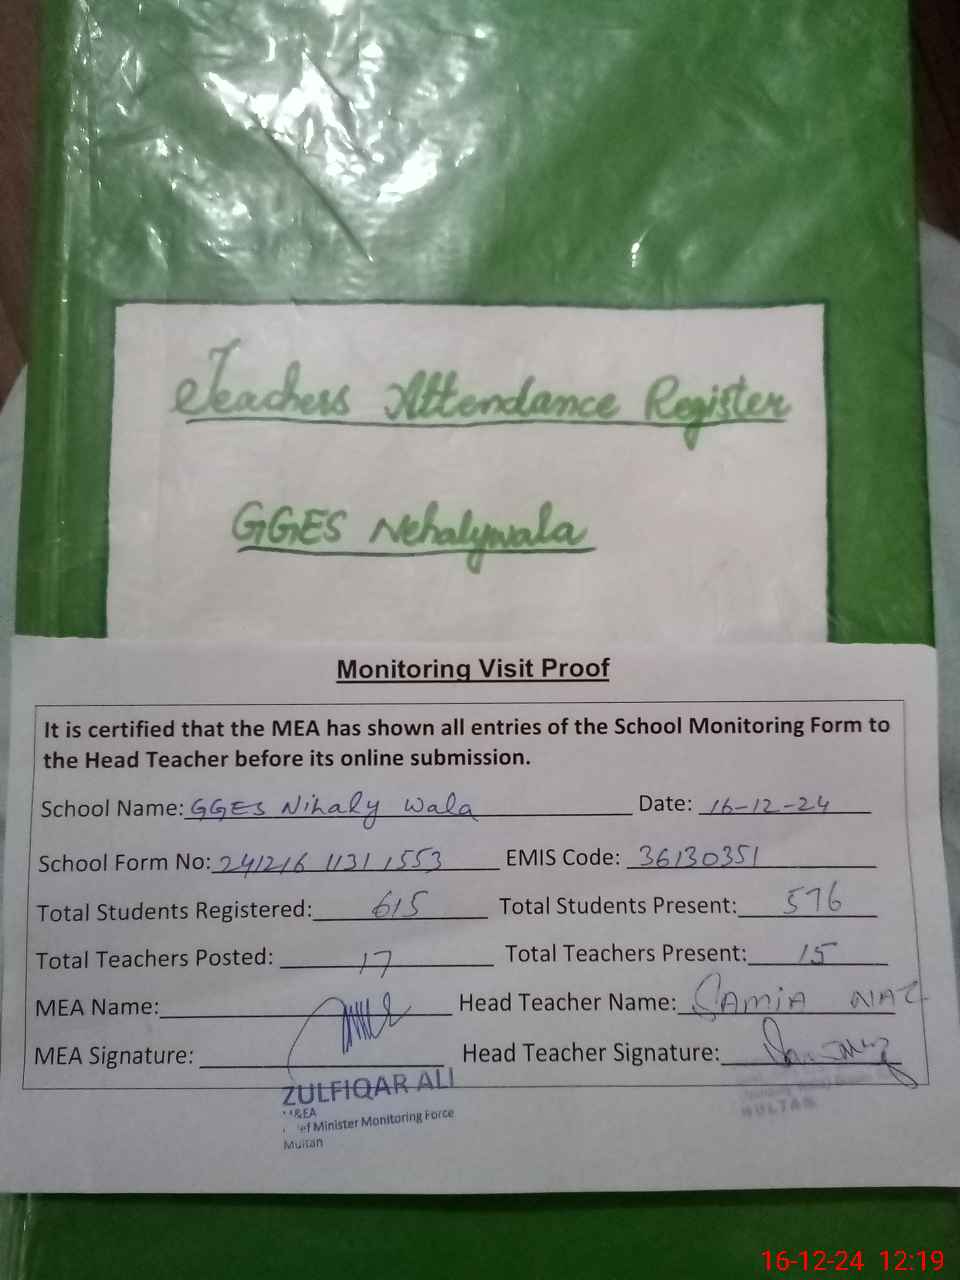 Teachers Attendance Register
GGES Nehalywala
Monitoring Visit Proof
It is certified that the MEA has shown all entries of the School Monitoring Form to
the Head Teacher before its online submission.
School Name: GGES Nihaly Wala Date: 16-12-24
School Form No: 241216 1131 1553 EMIS Code: 36130351
Total Students Registered: 615 Total Students Present: 576
Total Teachers Posted: 17 Total Teachers Present: 15
MEA Name: Head Teacher Name: SAMIA NAZ
MEA Signature: Head Teacher Signature:
ZULFIQAR ALI
Minister Monitoring Force
Multan
MULTAN
16-12-24 12:19